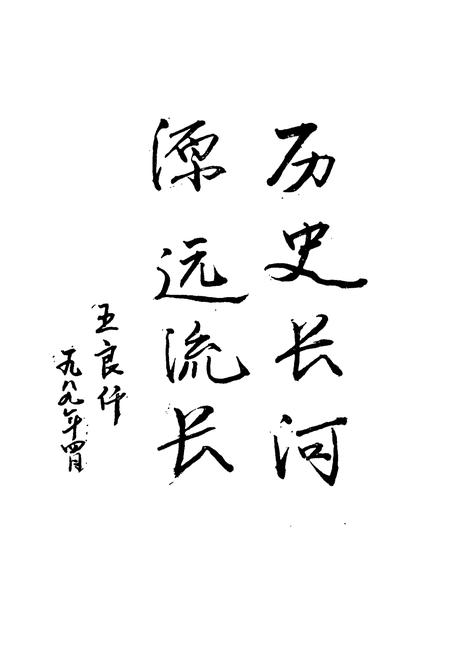 历史长河
源远流长
王良仟
一九八九年四月